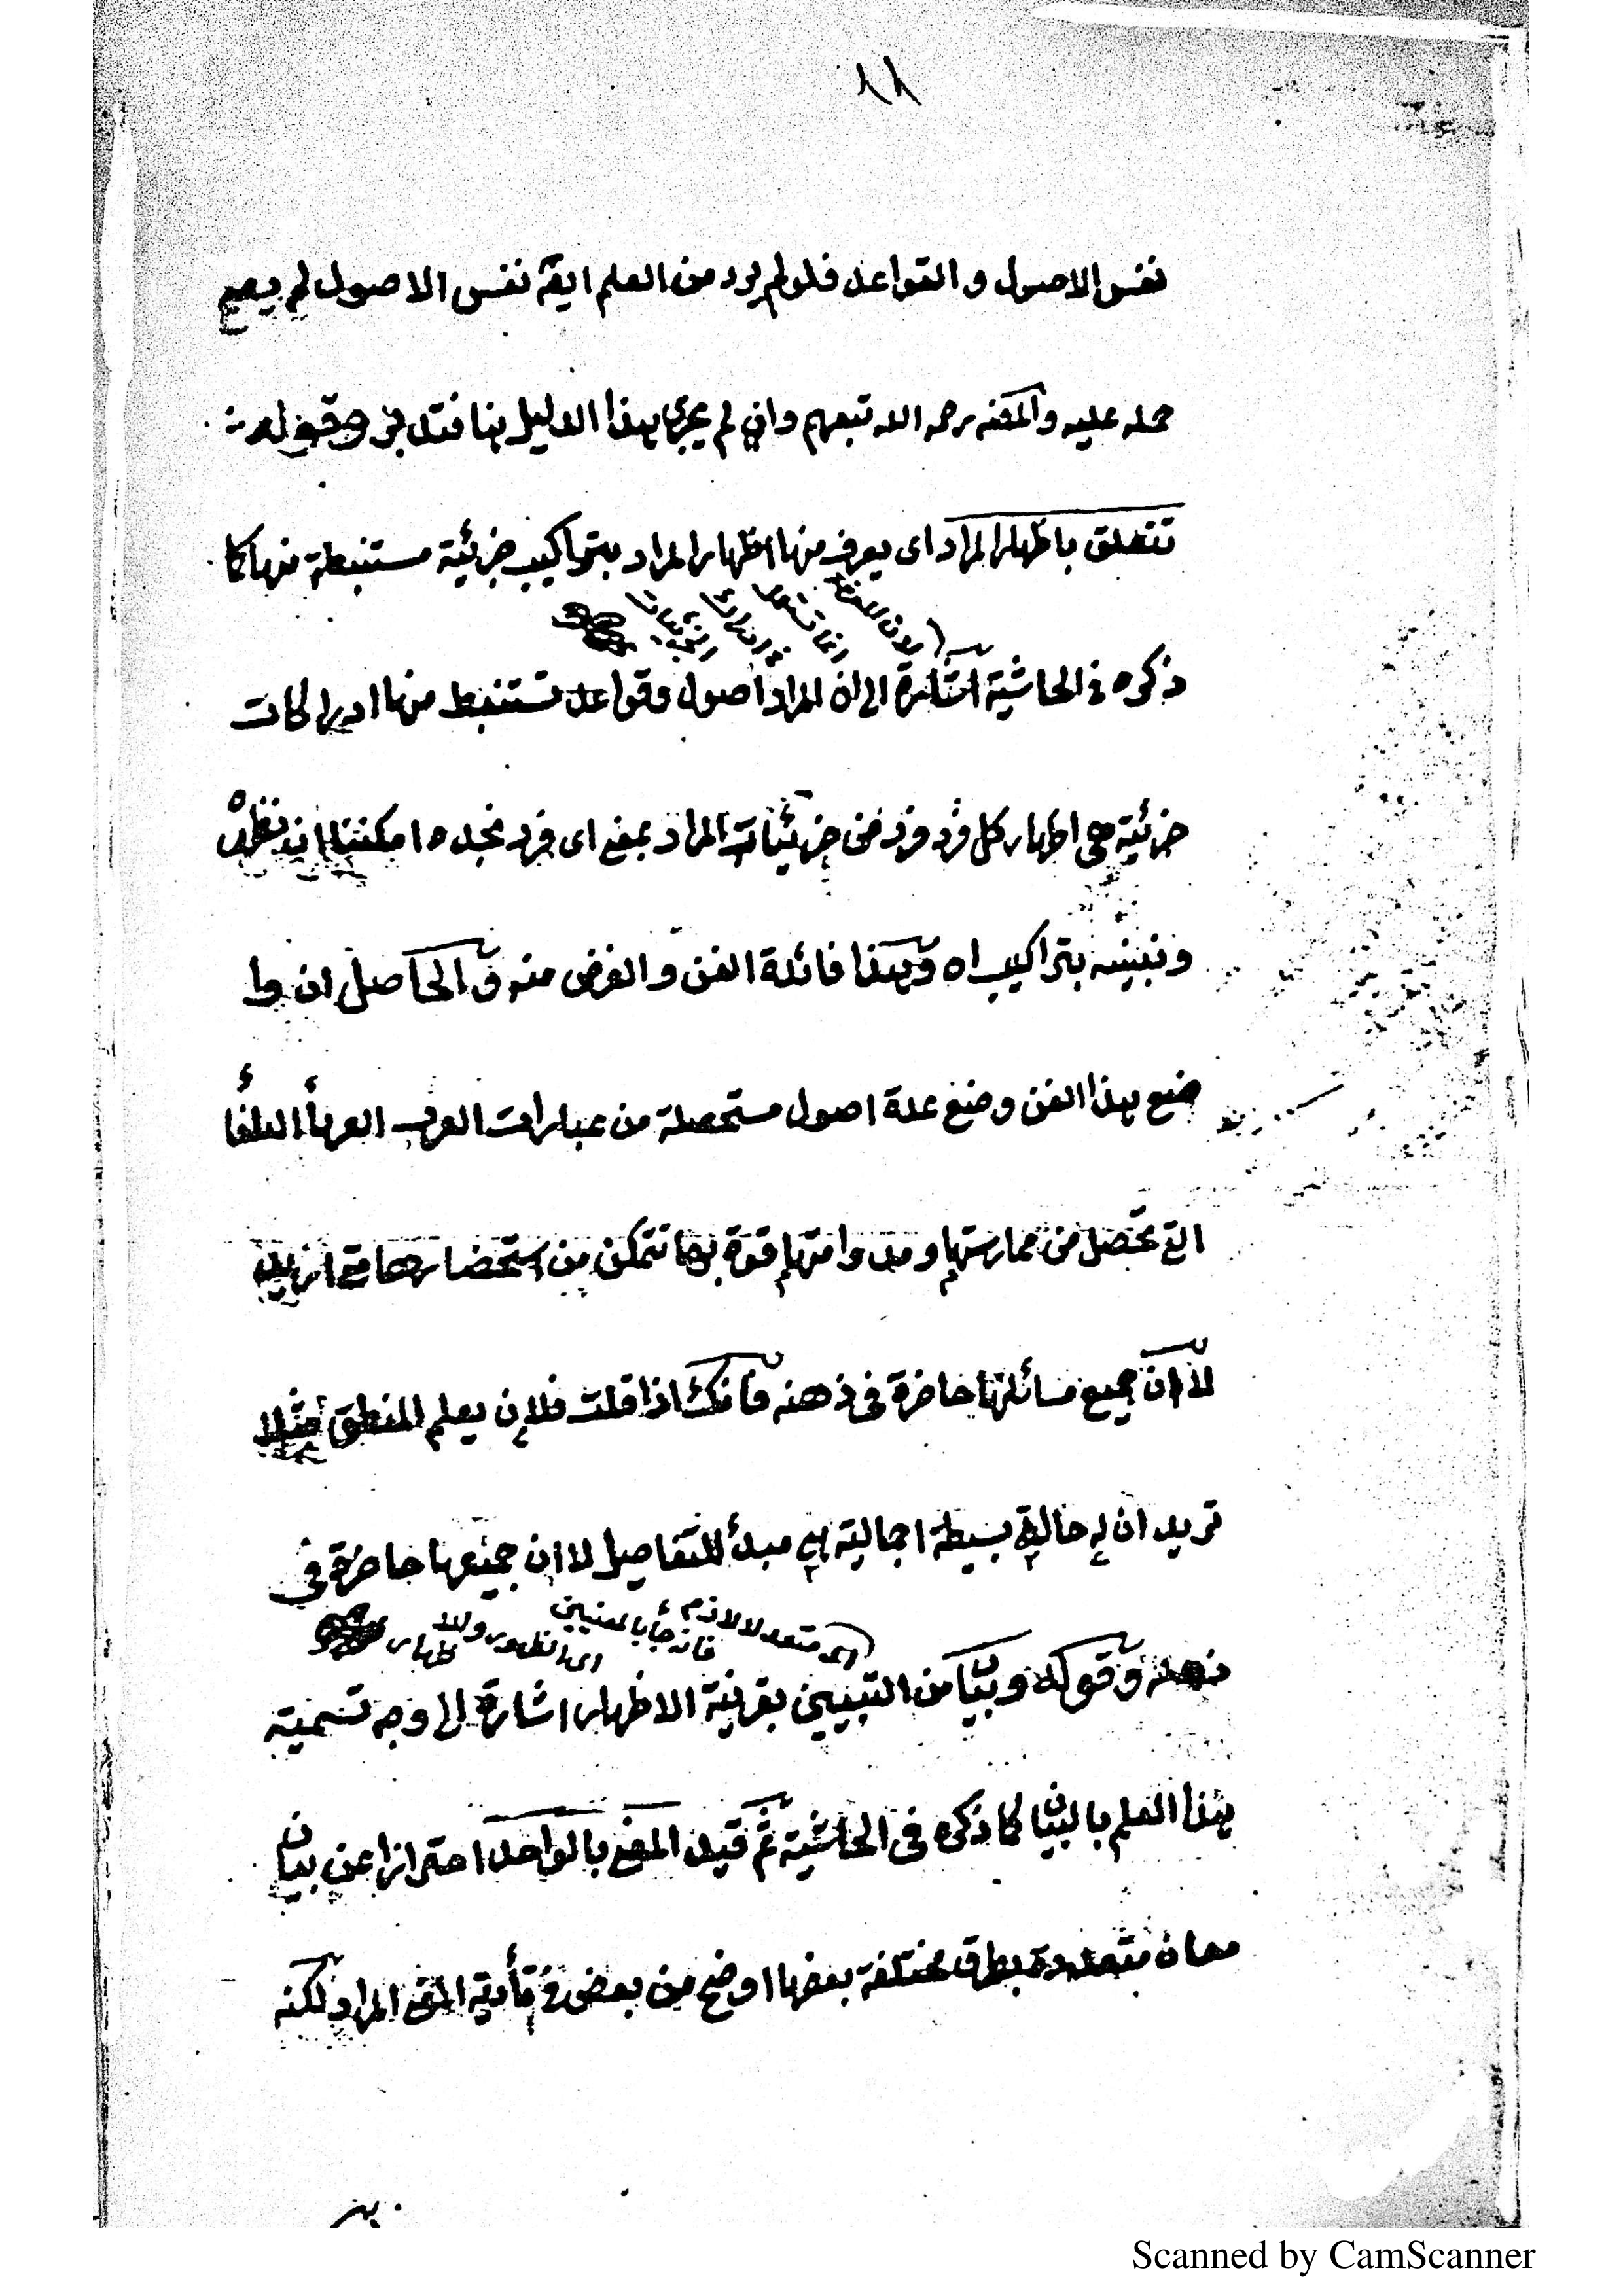 ٨٨
نفس الاصول و القواعد فلو لم يرد من العلم ايضً نفس الاصول لم يصح
حمله عليه والمصنف رحمه الله تبعهم وان لم يجرى هذا الدليل هنا فتدبر وقوله
تتعلق باظهار المراد اى يعرف منها اظهار المراد بتراكيب جزئية مستنبطة منها كما
ذكره فى الحاشية اشارة الى ان المراد اصول وقواعد تستنبط منها ادراكات
جزئية هى اظهار كل فرد فرد من جزئيات المراد بمعنى اى فرد نجده امكننا ان نظهره
ونبينه بتراكيب اه وهذا فائدة الفن والغرض منه والحاصل ان وا
ضع هذا الفن وضع عدة اصول مستحصلة من عبارات العرب العرباء البلغاء
التى تحصل من ممارستها ومداومتها قوة بها تتمكن من استحضارها متى اريد
لا ان جميع مسائلها حاضرة فى ذهنه فانك اذا قلت فلان يعلم المنطق مثلا
تريد ان له حالة بسيطة اجمالية هى مبدأ للتفاصيل لا ان جميعها حاضرة فى
اى متعد لا لازم فانه جاء بالمعنيين اى الظهور والاظهار
ذهنه وقوله وبيان من التبيين بقرينة الاظهار اشارة الى وجه تسمية
هذا العلم بالبيان كما ذكره فى الحاشية ثم قيد المعنى بالواحد احترازا عن بيان
معان متعددة بطرق مختلفة بعضها اوضح من بعض فى تأدية المعنى المراد لكنه
Scanned by CamScanner